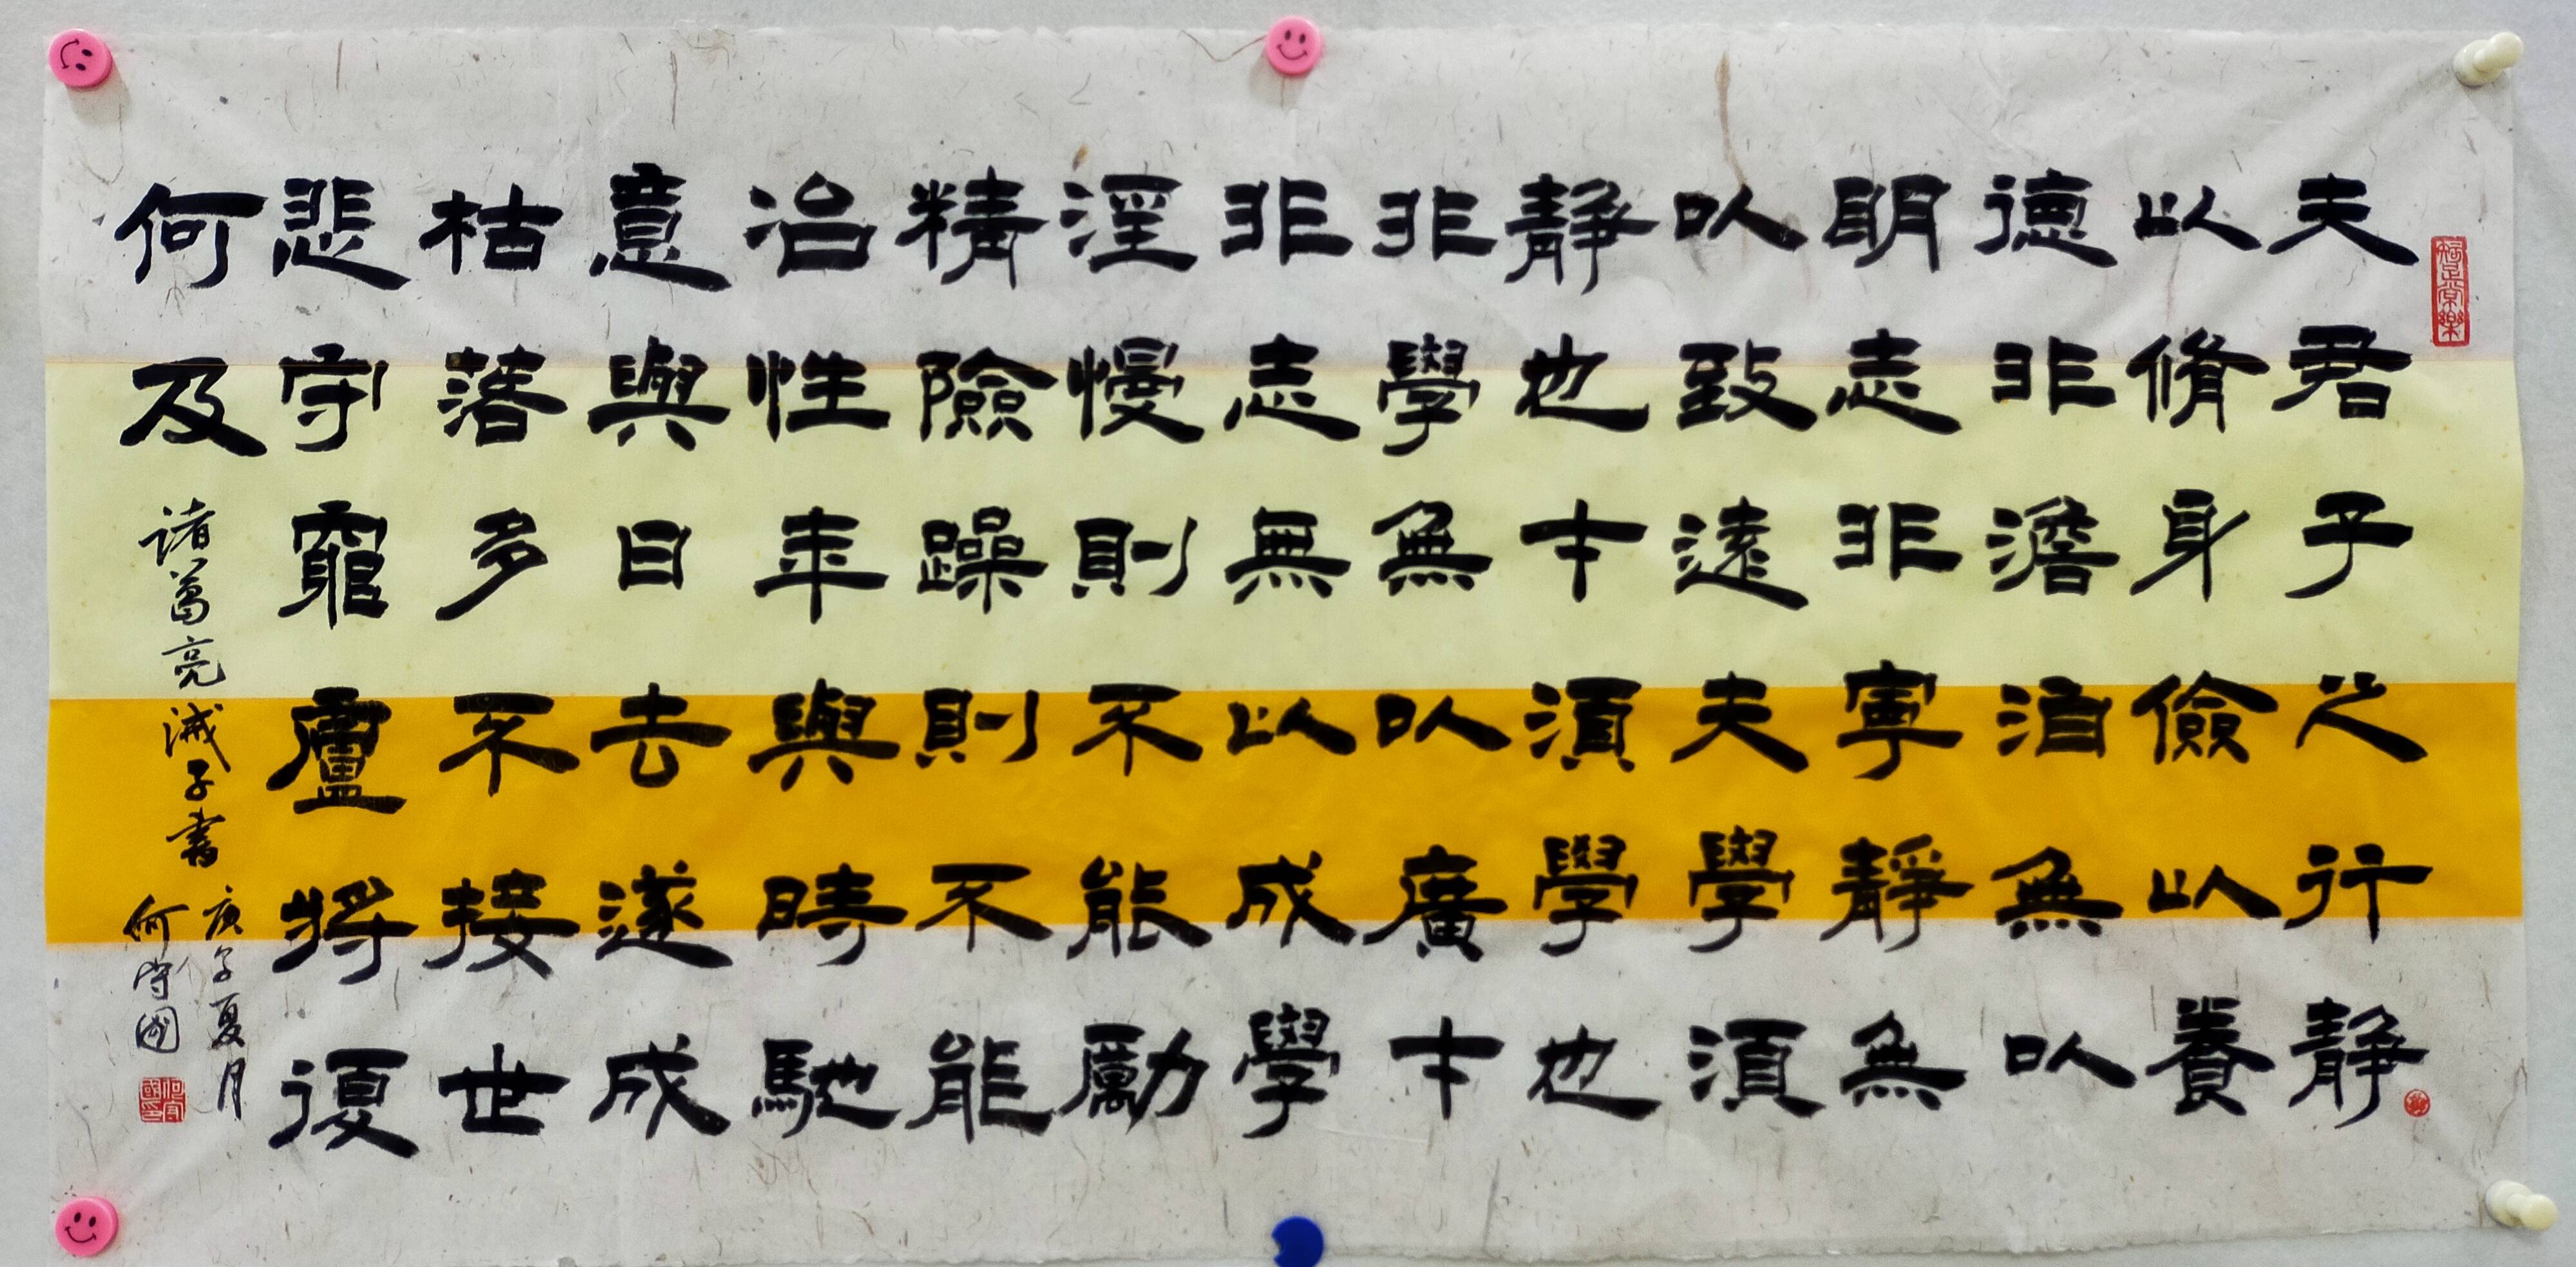 夫君子之行静
以脩身儉以養
德非澹泊無以
明志非寧静無
以致遠夫學須
静也才須學也
非學無以廣才
非志無以成學
淫慢則不能勵
精險躁則不能
治性年與時馳
意與日去遂成
枯落多不接世
悲守窮廬將復
何及
諸葛亮誡子書
庚子夏月
何守國
知足常樂
何守國印